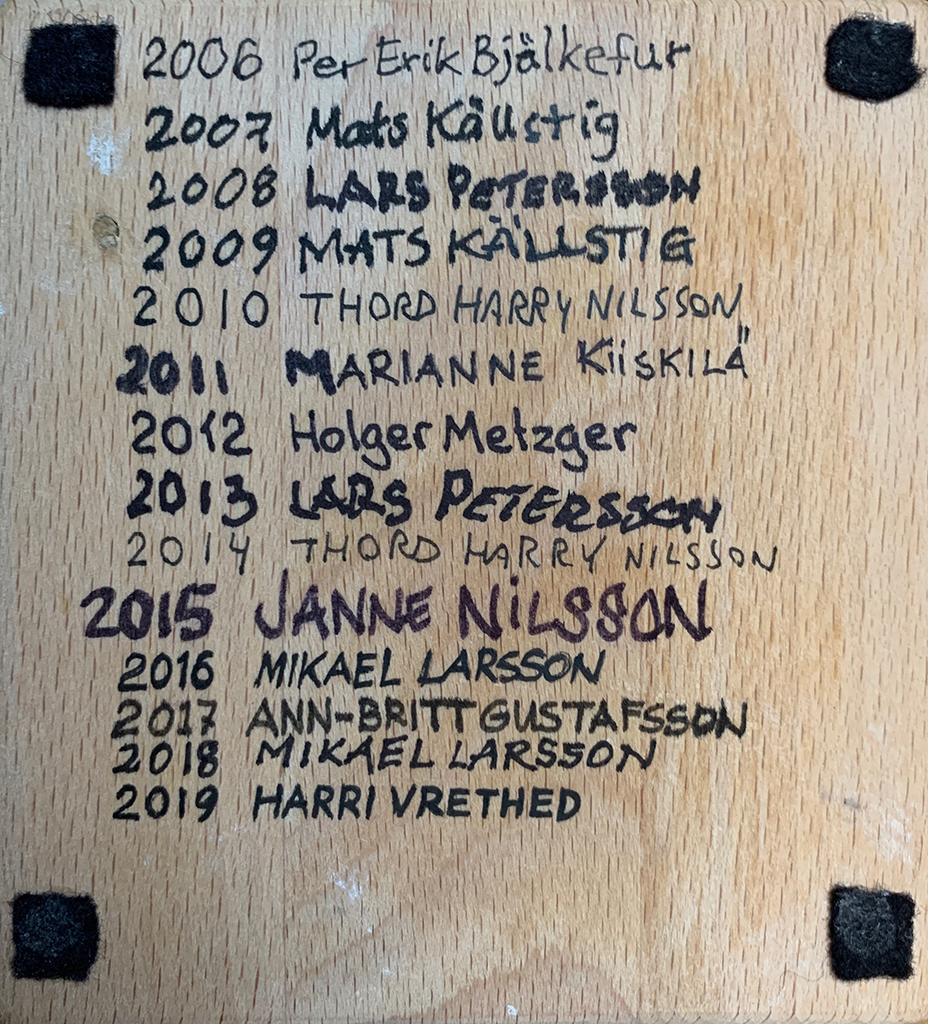 2006 Per Erik Bjälkefur
2007 Mats Källstig
2008 LARS PETERSSON
2009 MATS KÄLLSTIG
2010 THORD HARRY NILSSON
2011 MARIANNE KiiSKILÄ
2012 Holger Metzger
2013 LARS PETERSSON
2014 THORD HARRY NILSSON
2015 JANNE NiLSSON
2016 MIKAEL LARSSON
2017 ANN-BRITT GUSTAFSSON
2018 MIKAEL LARSSON
2019 HARRI VRETHED